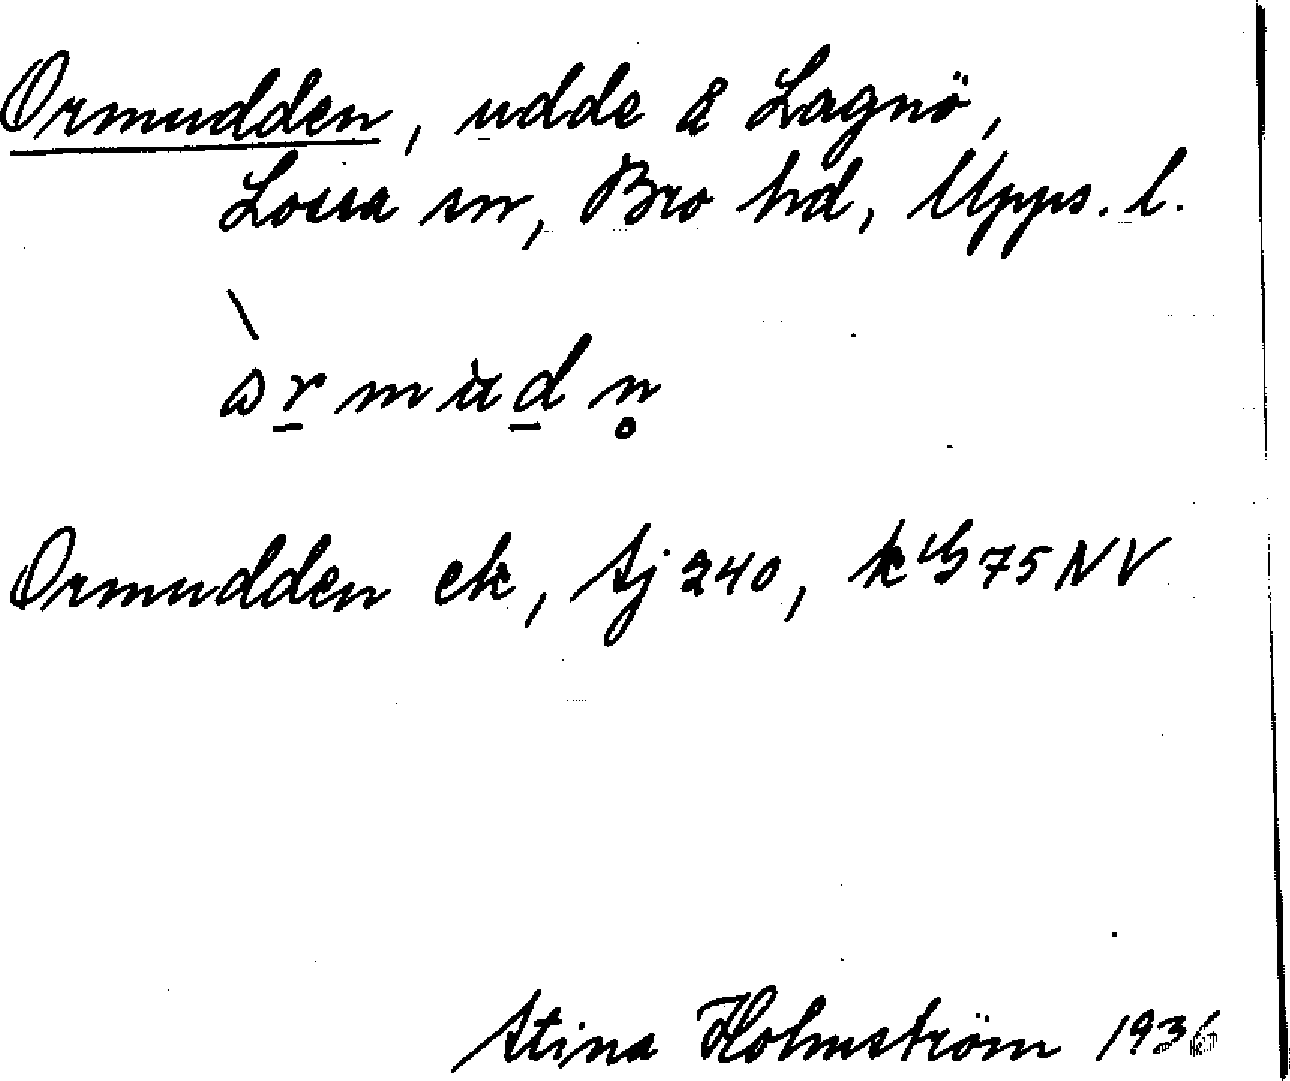 Ormudden, udde å Lagnö,
Lossa sn, Bro hd, Upps. l.
Ormudden ek, sj 240, k 75 NV
Stina Holmström 1936